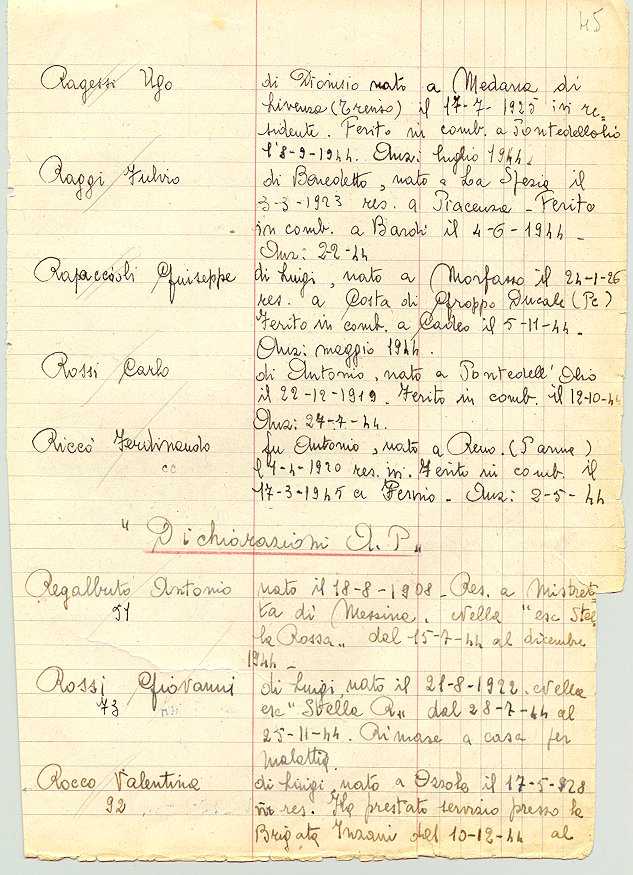 45
Ragessi Ugo di Dionisio nato a Medana di
Livenza (Treviso) il 17-7-1925 ivi re-
sidente. Ferito in comb. a Pontedellolio
l'8-9-1944. Anz: luglio 1944.
Raggi Fulvio di Benedetto, nato a La Spezia il
3-3-1923 res. a Piacenza - Ferito
in comb. a Bardi il 4-6-1944 -
Anz: 2-2-44
Rapaccioli Giuseppe di Luigi, nato a Morfasso il 24-1-26
res. a Costa di Groppo Ducale (Pc)
Ferito in comb. a Cadeo il 5-11-44.
Anz: maggio 1944.
Rossi Carlo di Antonio, nato a Pontedell'Olio
il 22-12-1919. Ferito in comb. il 12-10-44
Anz: 27-7-44.
Riccò Ferdinando fu Antonio, nato a Reno. (Parma)
cc il 7-4-1920 res. ivi. Ferito in comb. il
17-3-1945 a Fermo - Anz: 2-5-44
"Dichiarazioni A.P"
Regalbuto Antonio nato il 18-8-1908. Res. a Mistret-
51 ta di Messina. Nella "esc Stel-
la Rossa" dal 15-7-44 al dicembre
1944 -
Rossi Giovanni di Luigi, nato il 21-8-1922. Nella
73 esc "Stella R" dal 28-7-44 al
25-11-44. Rimase a casa per
malattia.
Rocco Valentina di Luigi, nato a Ozzola il 17-5-828
92 ivi res. Ha prestato servizio presso la
Brigata Inzani dal 10-12-44 al